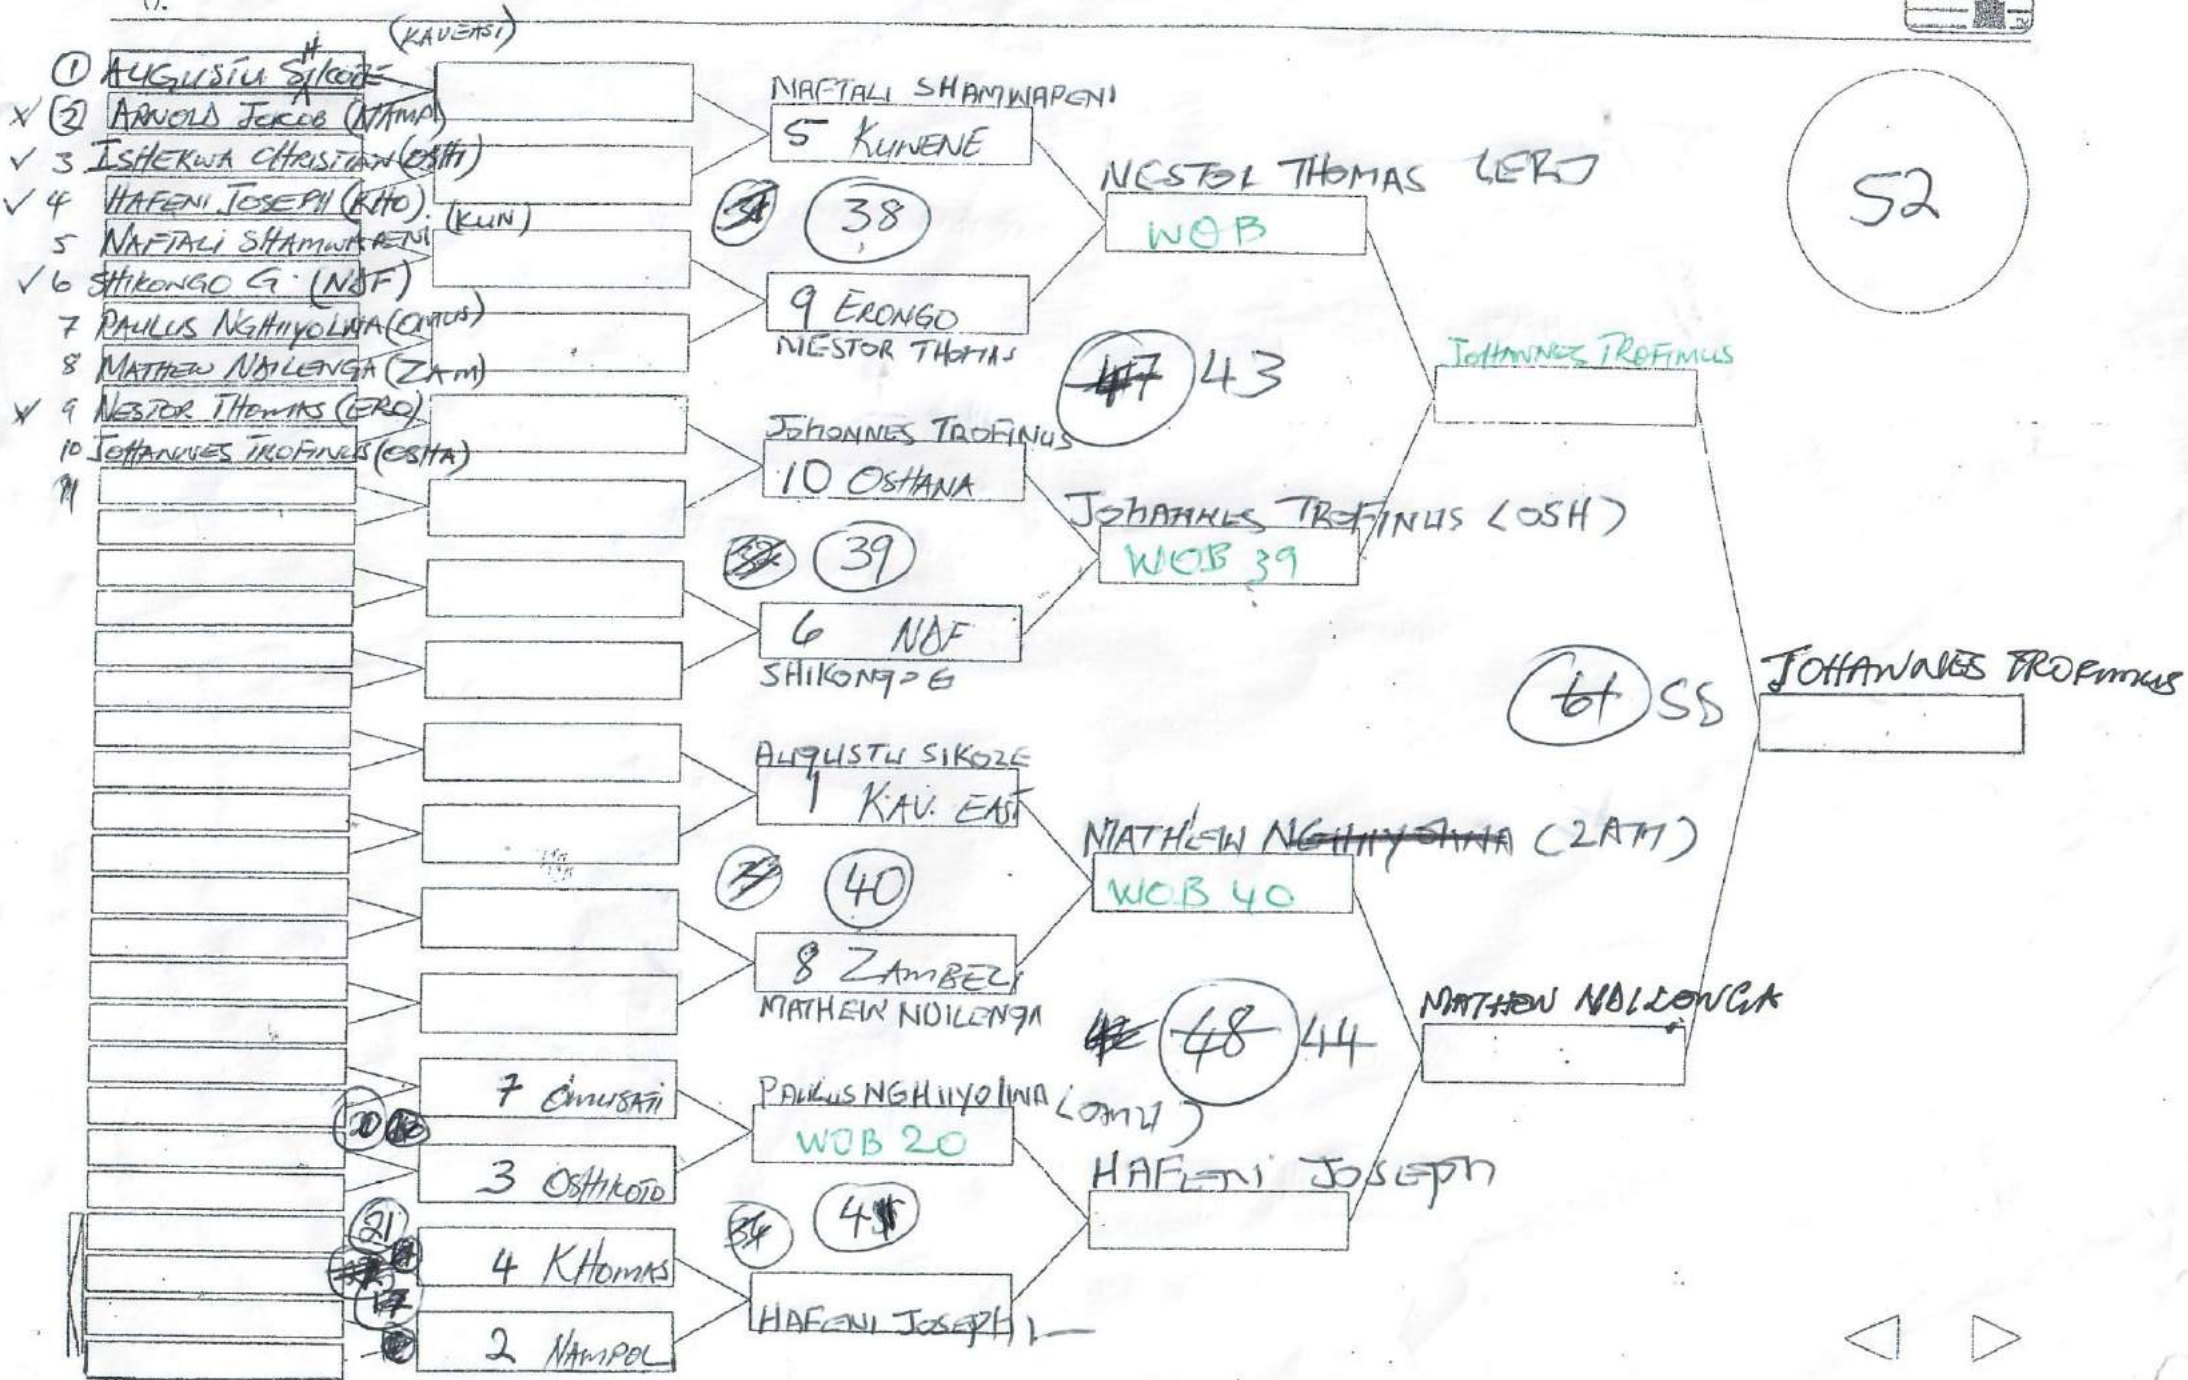 (KAVEASI)
① AUGUSTU SIKOZE
H
② ARNOLD JACOB (NAMP)
✓ 3 ISHEKWA CHRISTIAN (OSHI)
✓ 4 HAFENI JOSEPH (KHO).
5 NAFTALI SHAMWAPENI (KUN)
✓ 6 SHIKONGO G. (NDF)
7 PAULUS NGHIIYOLWA (OMUS)
8 MATHEW NAILENGA (ZAM)
9 NESTOR THOMAS (ERO)
10 JOHANNES TROFINUS (OSHA)
11
7 OMUSATI
20
3 OSHIKOTO
21
4 KHOMAS
17
2 NAMPOL
NAFTALI SHAMWAPENI
5 KUNENE
38
9 ERONGO
NESTOR THOMAS
JOHONNES TROFINUS
10 OSHANA
39
6 NDF
SHIKONGO G
AUGUSTU SIKOZE
1 KAV. EAST
40
8 ZAMBEZI
MATHEW NDILENGA
PAULUS NGHIIYOLWA (OMU)
WOB 20
34
HAFENI JOSEPH
NESTOR THOMAS (ER)
WOB
47 43
JOHANNES TROFINUS (OSH)
WOB 39
MATHEW NGHIIYOLWA (ZAM)
WOB 40
48 44
HAFENI JOSEPH
JOHANNES TROFIMUS
61 55
MATHEW NDILENGA
JOHANNES TROFIMUS
52